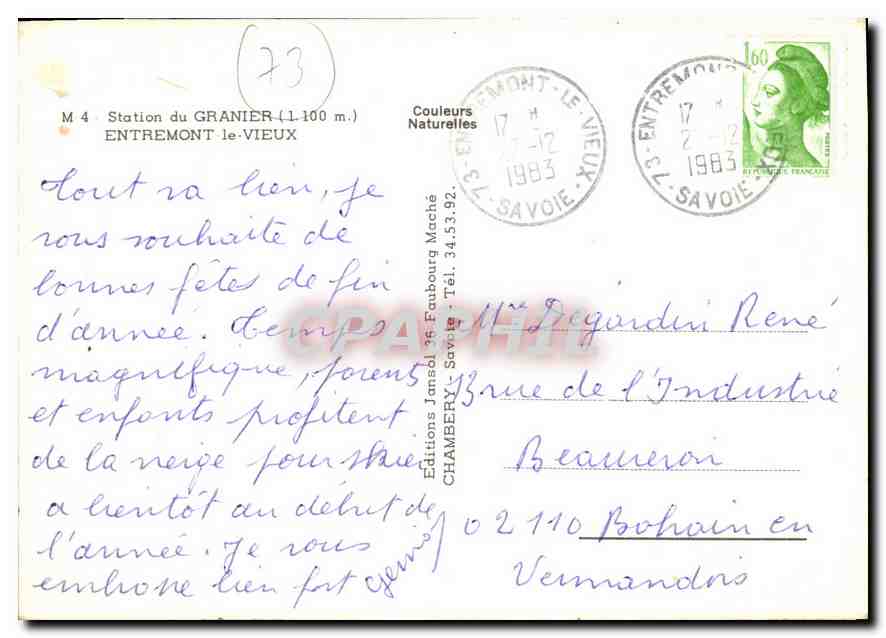 73
M 4 Station du GRANIER (1.100 m.)
ENTREMONT le-VIEUX
Couleurs
Naturelles
Tout va bien, je
vous souhaite de
bonnes fêtes de fin
d'année. Temps
magnifique, parents
et enfants profitent
de la neige pour skier
a bientôt au début de
l'année. Je vous
embrasse bien fort
Editions Jansol 36 Faubourg Maché
CHAMBERY - Savoie - Tél. 34.53.92.
73 - ENTREMONT-LE-VIEUX
17 H
-12
1983
SAVOIE
73 - ENTREMON
17 H
2 -12
1983
SAVOIE
1,60
POSTES
REPUBLIQUE FRANÇAISE
Mre Dégardin René
13 rue de l'Industrie
02110 Bohain en
Vermandois
CPAPHIL